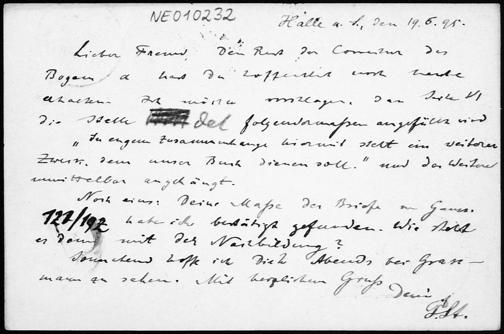 NE010232
Halle a. S., den 19.6.95.
Lieber Freund, Den Rest der Correctur des
Bogens a hast Du hoffentlich noch heute
erhalten. Ich möchte vorschlagen, dass Seite VI
die Stelle del folgendermaßen ausgefüllt wird
„In engem Zusammenhange hiermit steht ein weiterer
Zweck, dem unser Buch dienen soll." und das Weitere
unmittelbar angehängt.
Noch eins: Deine Maße der Briefe an Gauss
127/192 habe ich bestätigt gefunden. Wie steht
es denn mit der Nachbildung?
Sonnabend hoffe ich Dich Abends bei Grass-
mann zu sehen. Mit herzlichem Gruß
Dein
P. St.